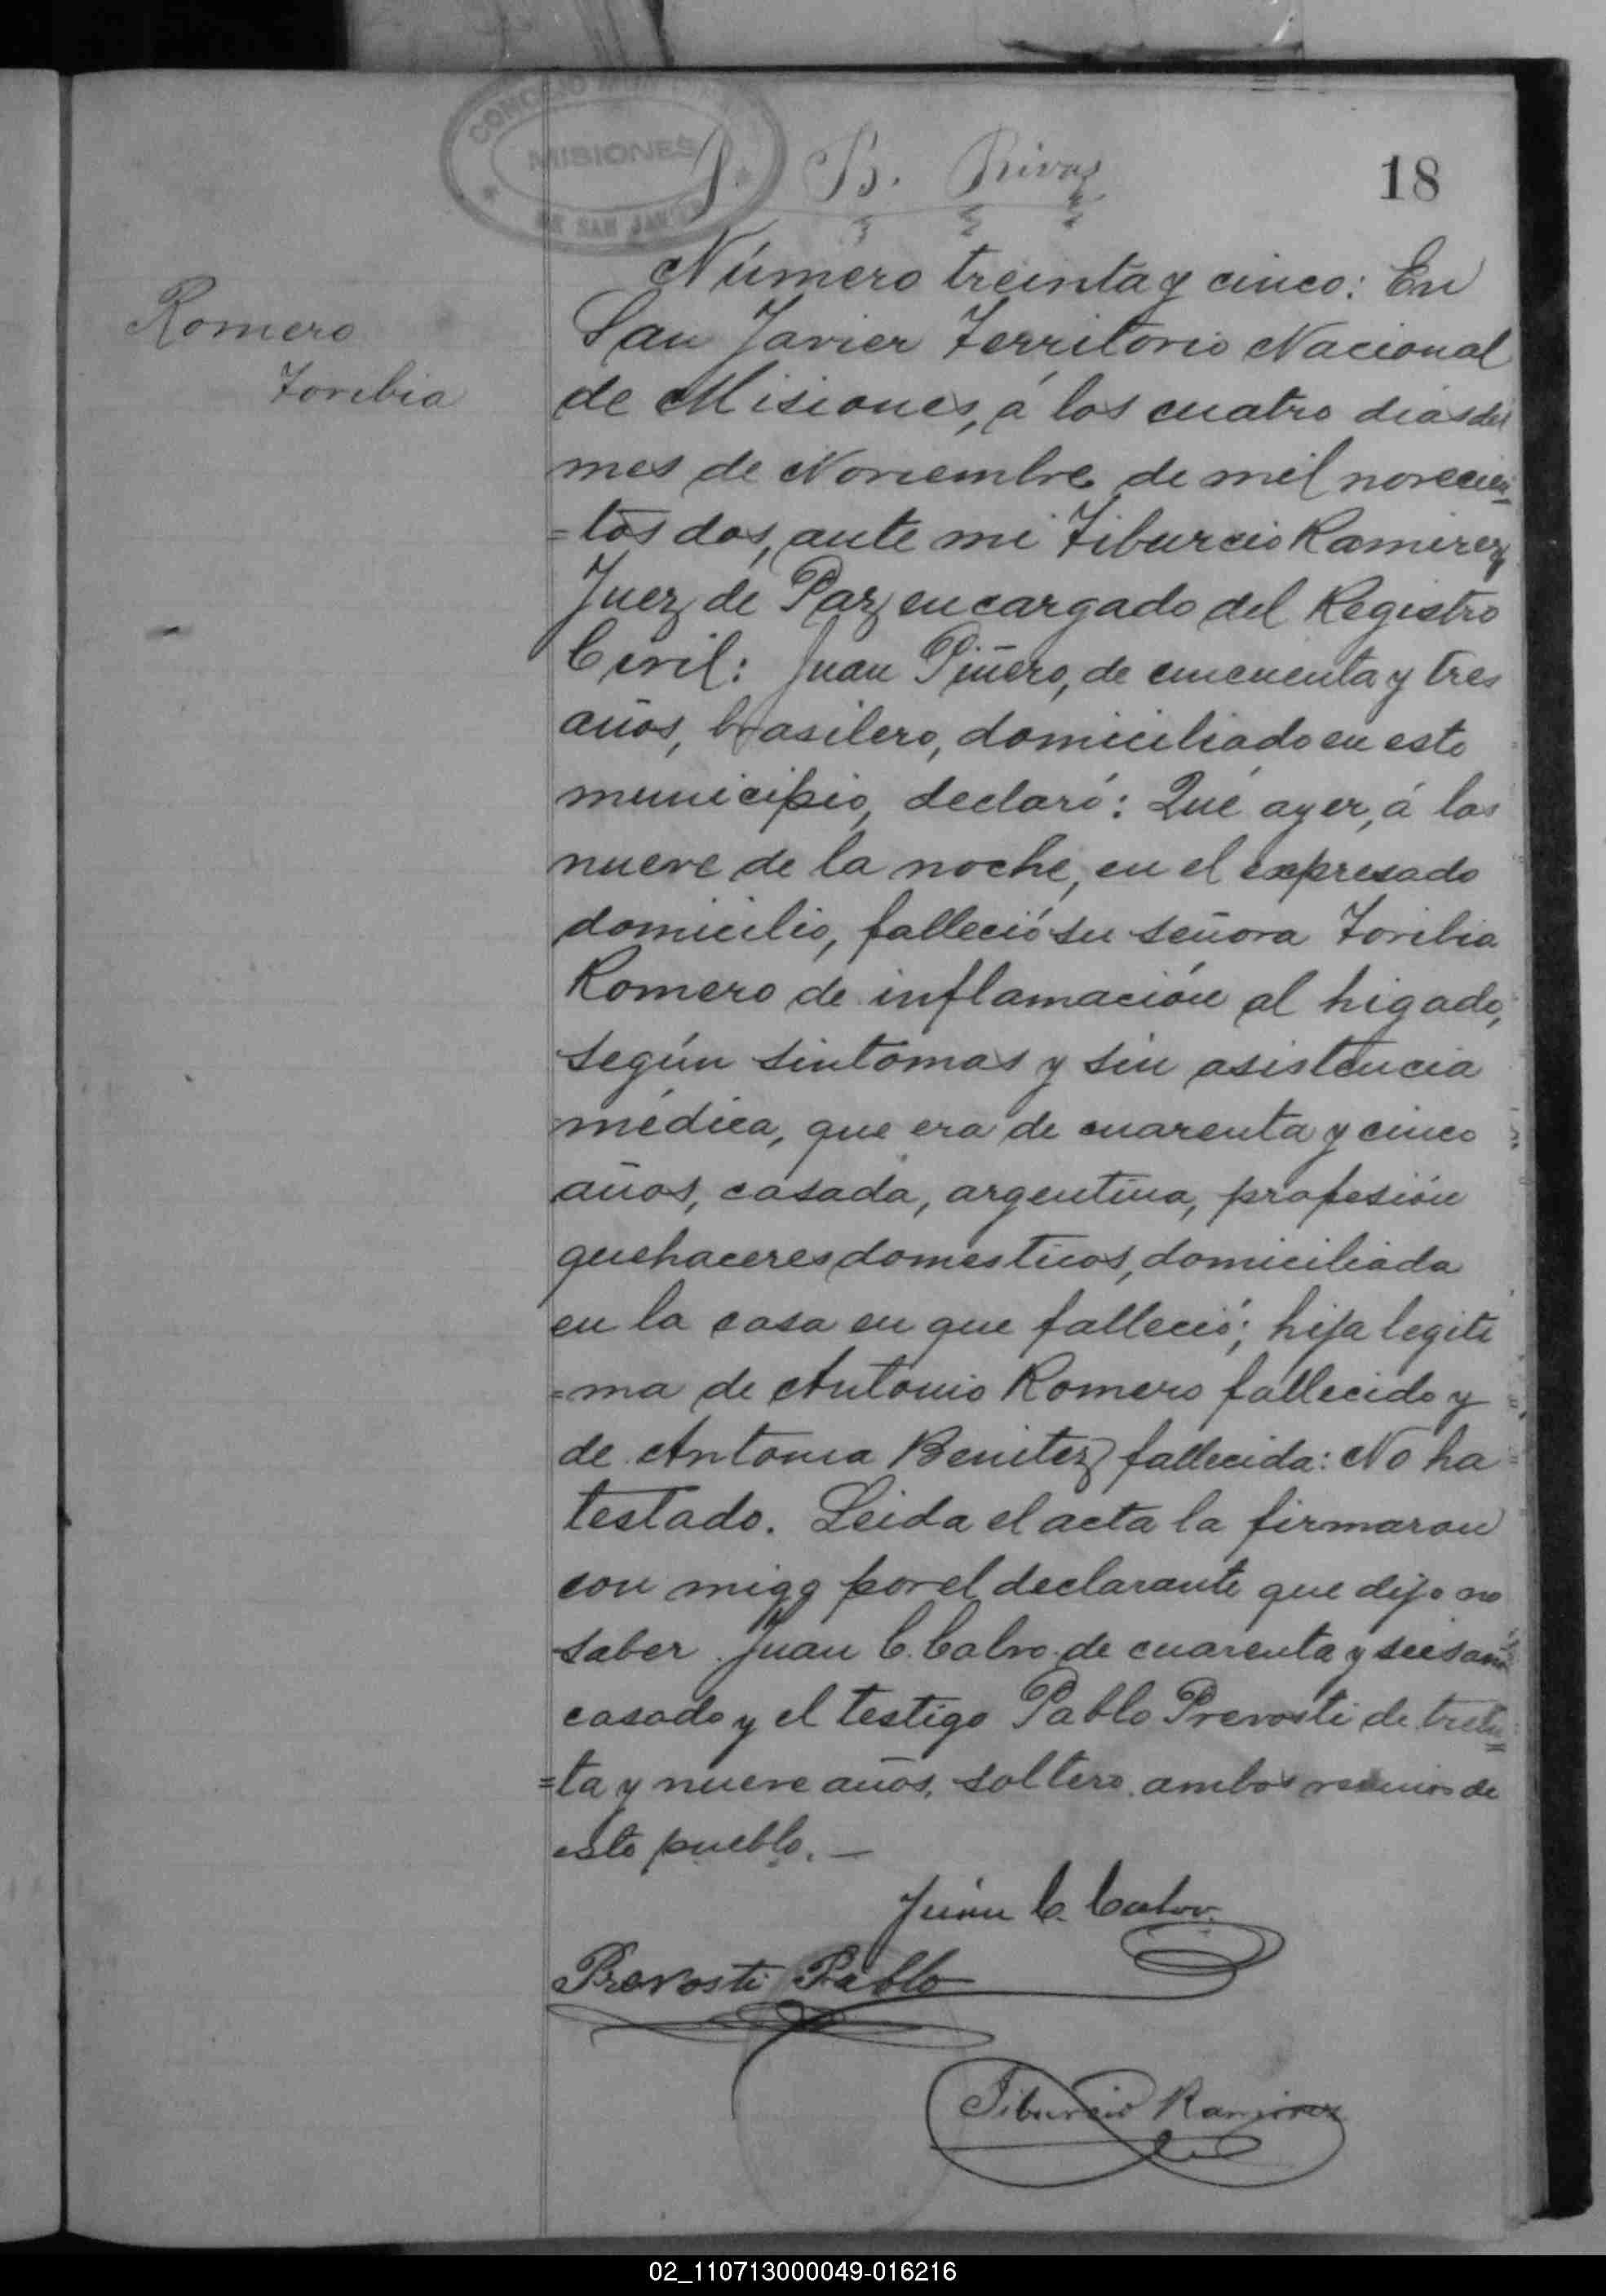 MISIONES
DE SAN JAVIER
P. B. Rivas
18
Romero
Toribia
Número treinta y cinco: En
San Javier Territorio Nacional
de Misiones, á los cuatro dias del
mes de Noviembre de mil novecien
=tos dos, ante mi Tiburcio Ramirez
Juez de Paz encargado del Registro
Civil: Juan Piñero, de cincuenta y tres
años, brasilero, domiciliado en este
municipio, declaró: Qué ayer, á las
nueve de la noche, en el expresado
domicilio, falleció su señora Toribia
Romero de inflamación al higado,
según sintomas y sin asistencia
médica, que era de cuarenta y cinco
años, casada, argentina, profesión
quehaceres domesticos, domiciliada
en la casa en que falleció; hija legiti
=ma de Antonio Romero fallecido y
de Antonia Benitez fallecida: No ha
testado. Leida el acta la firmaron
con migo por el declarante que dijo no
saber Juan C. Calvo de cuarenta y seis años
casado y el testigo Pablo Prevosti de trein
=ta y nueve años, soltero, ambos vecinos de
este pueblo. —
Juan C. Calvo.
Prevosti Pablo
Tiburcio Ramirez
02_110713000049-016216